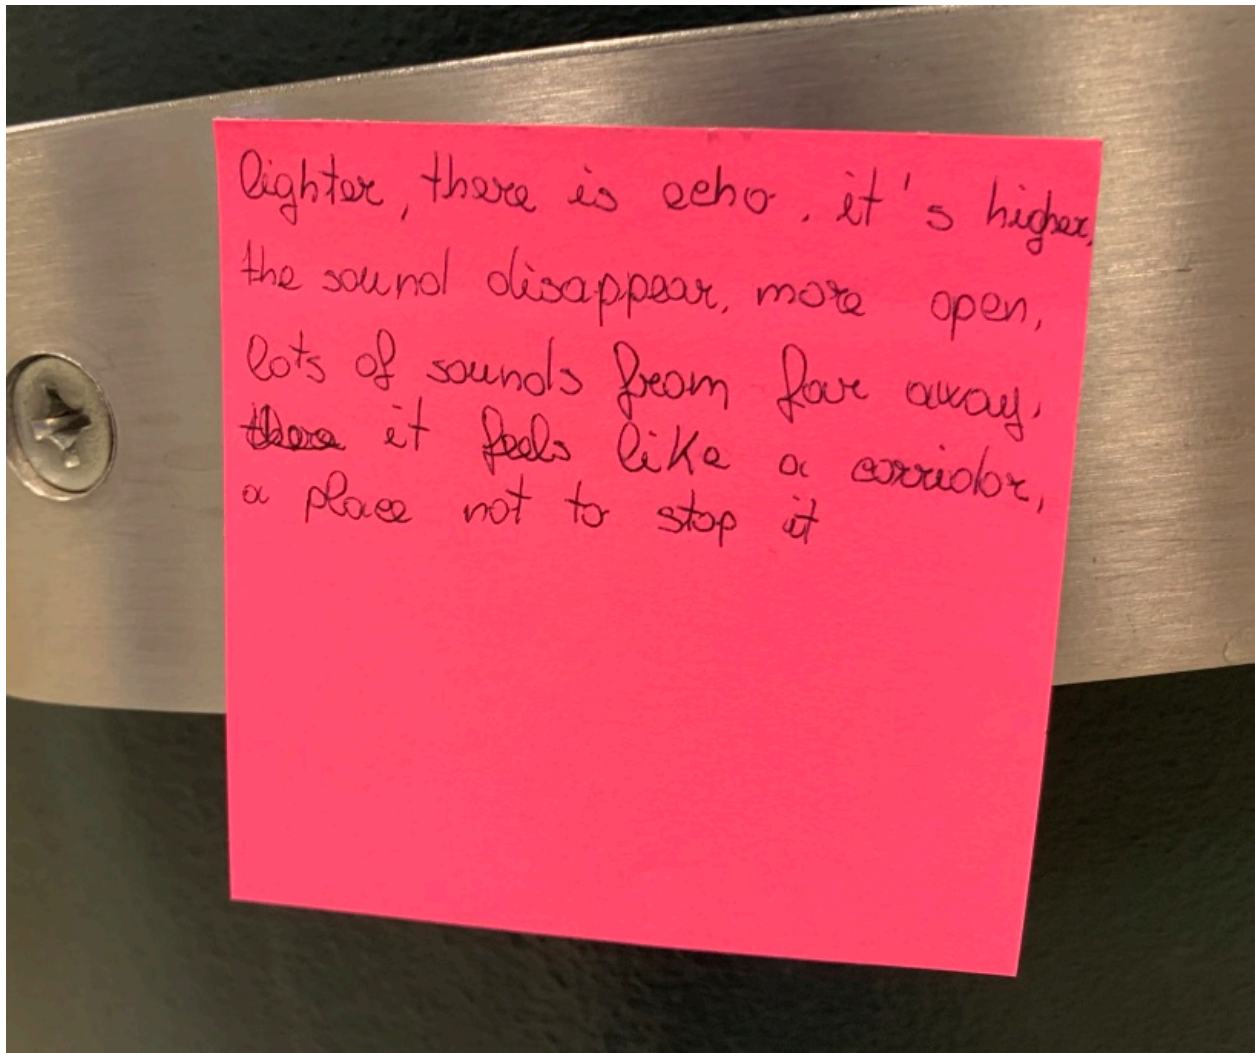 lighter, there is echo, it's higher,
the sound disappear, more open,
lots of sounds from far away,
there it feels like a corridor,
a place not to stop it